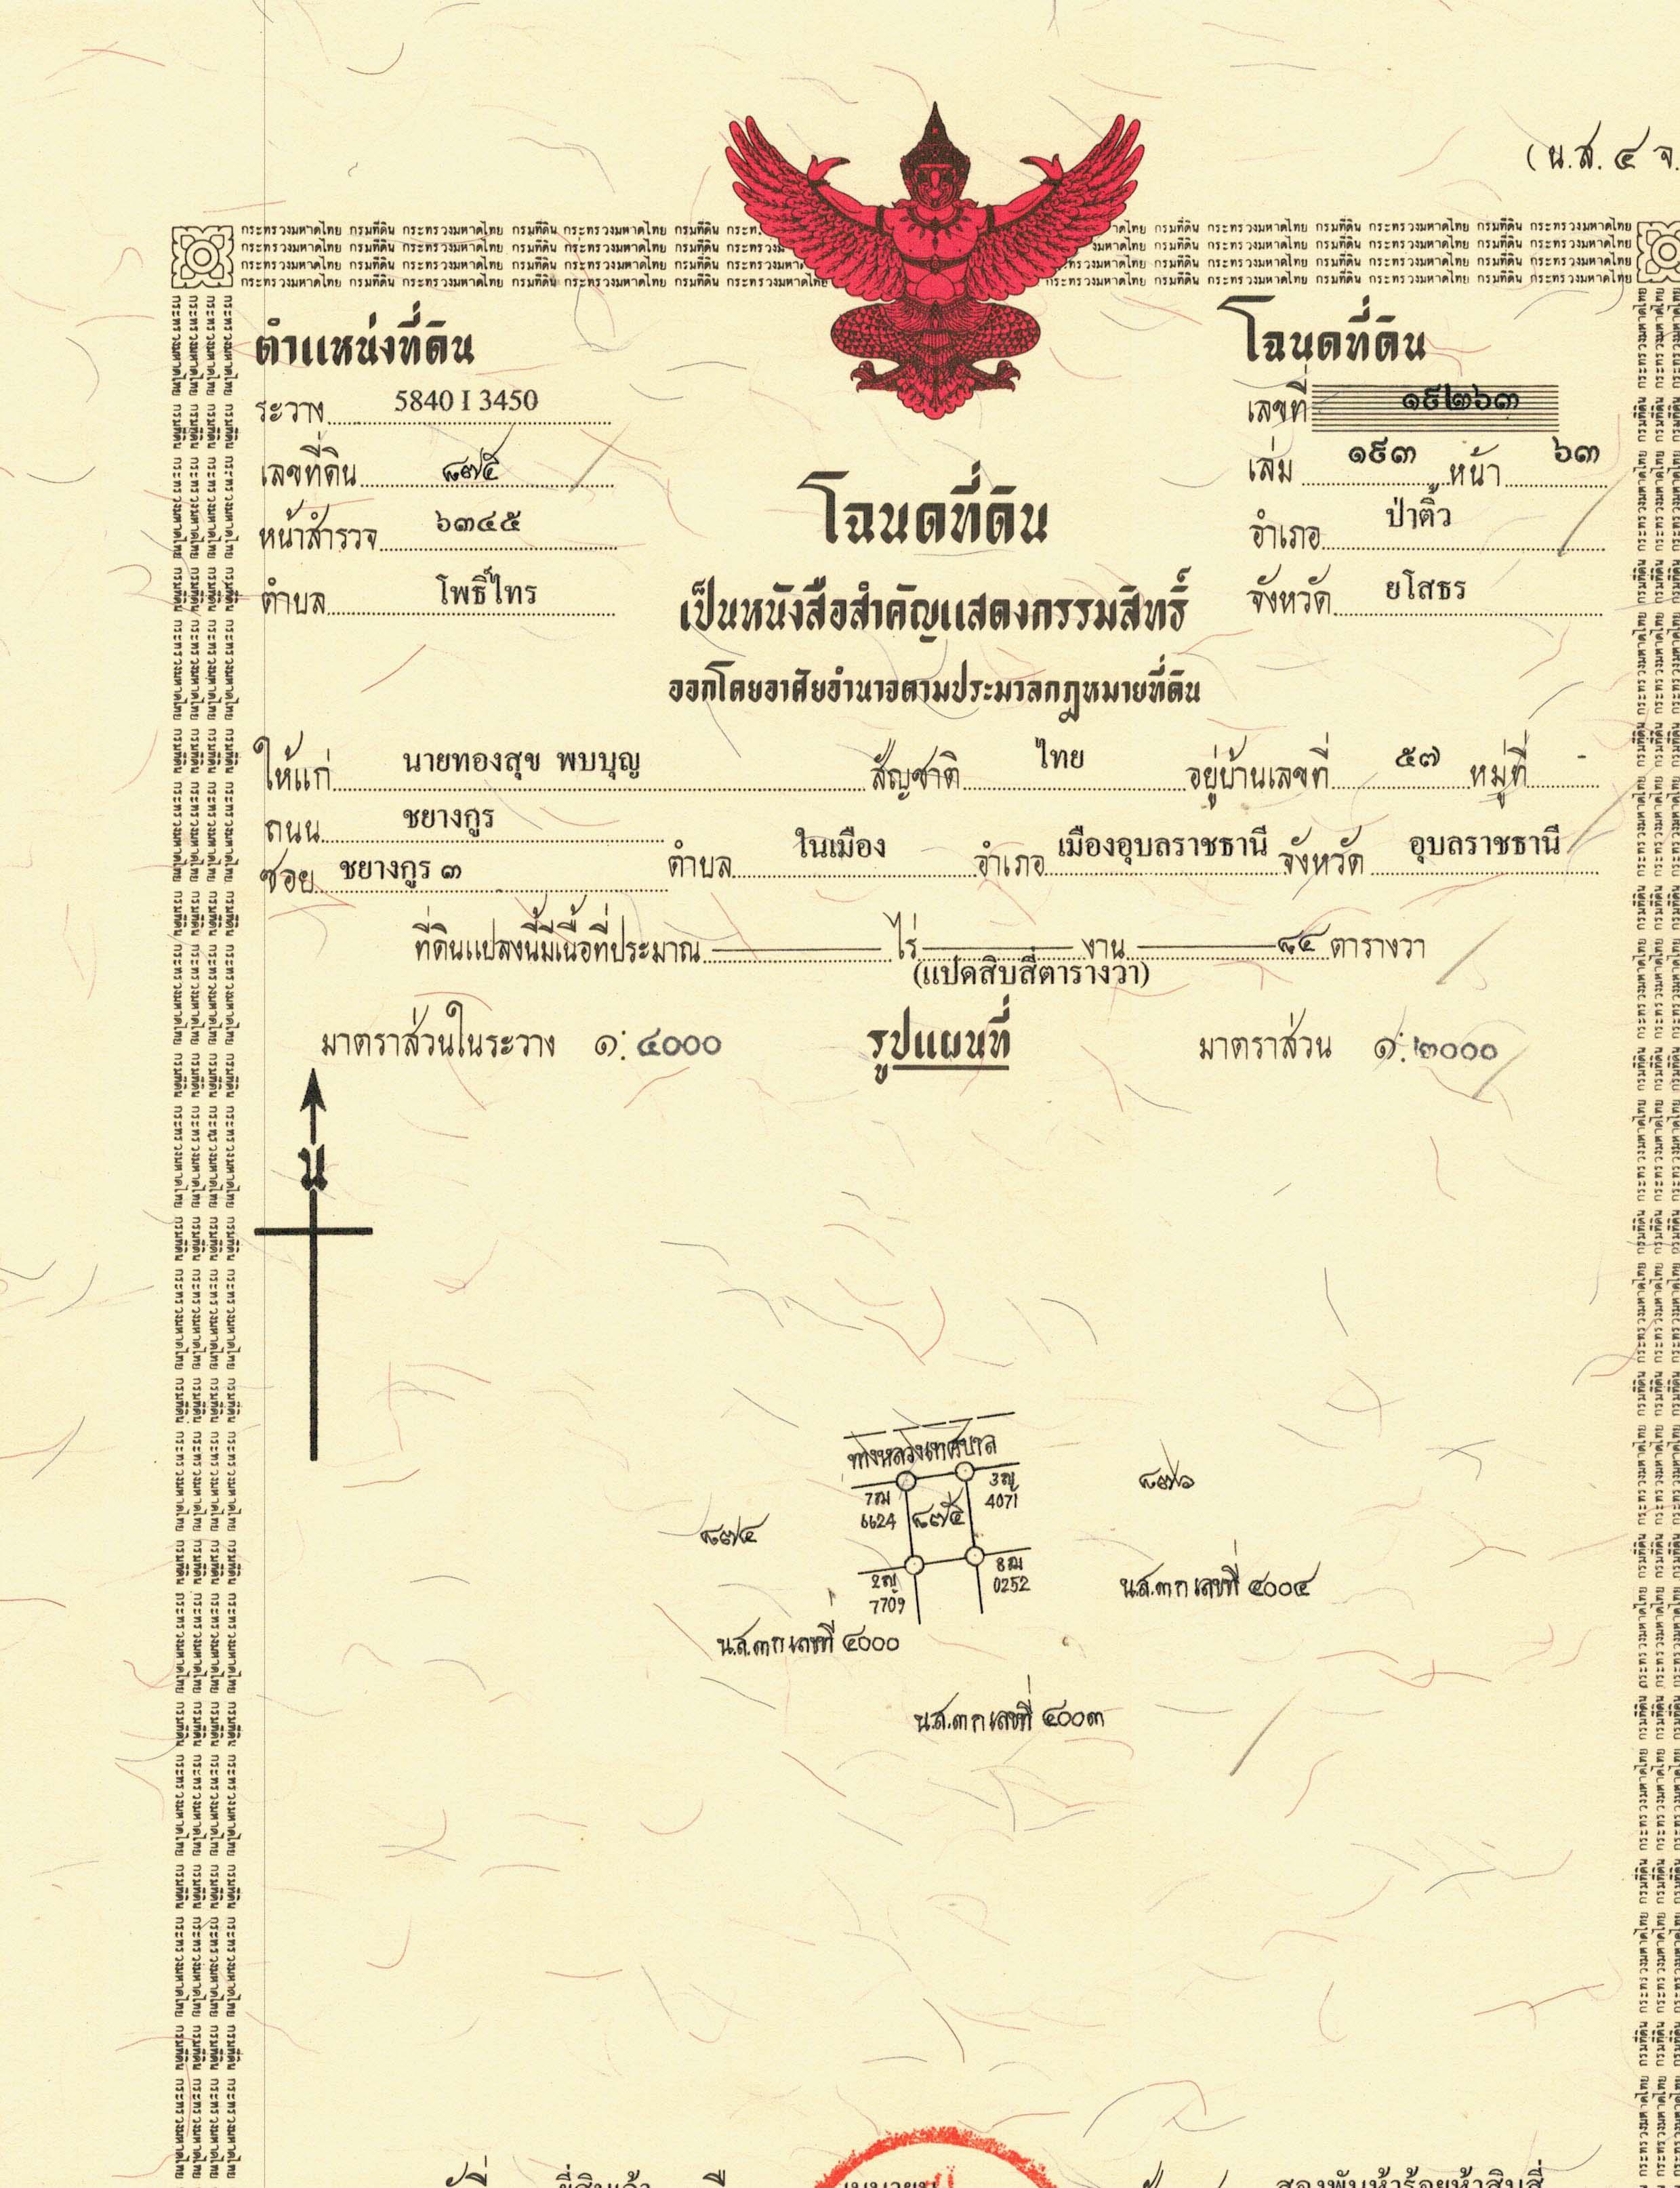 (น.ส. ๔ จ.
กระทรวงมหาดไทย กรมที่ดิน กระทรวงมหาดไทย กรมที่ดิน กระทรวงมหาดไทย กรมที่ดิน
ตำแหน่งที่ดิน
โฉนดที่ดิน
ระวาง 5840 I 3450
เลขที่ ๑๙๒๖๓
เลขที่ดิน ๘๗๕
เล่ม ๑๙๓ หน้า ๖๓
หน้าสำรวจ ๖๓๔๕
โฉนดที่ดิน
อำเภอ ป่าติ้ว
ตำบล โพธิ์ไทร
เป็นหนังสือสำคัญแสดงกรรมสิทธิ์
จังหวัด ยโสธร
ออกโดยอาศัยอำนาจตามประมวลกฎหมายที่ดิน
ให้แก่ นายทองสุข พบบุญ สัญชาติ ไทย อยู่บ้านเลขที่ ๕๗ หมู่ที่ -
ถนน ชยางกูร
ซอย ชยางกูร ๓ ตำบล ในเมือง อำเภอ เมืองอุบลราชธานี จังหวัด อุบลราชธานี
ที่ดินแปลงนี้มีเนื้อที่ประมาณ ไร่ งาน ๘๔ ตารางวา
(แปดสิบสี่ตารางวา)
มาตราส่วนในระวาง ๑:๔๐๐๐ รูปแผนที่ มาตราส่วน ๑:๒๐๐๐
น
ทางหลวงเทศบาล
7ฌ 6624
3ญ 4071
๘๗๖
๘๗๔
๘๗๕
2ญ 7709
8ฌ 0252
น.ส.๓ ก เลขที่ ๔๐๐๔
น.ส.๓ ก เลขที่ ๔๐๐๐
น.ส.๓ ก เลขที่ ๔๐๐๓